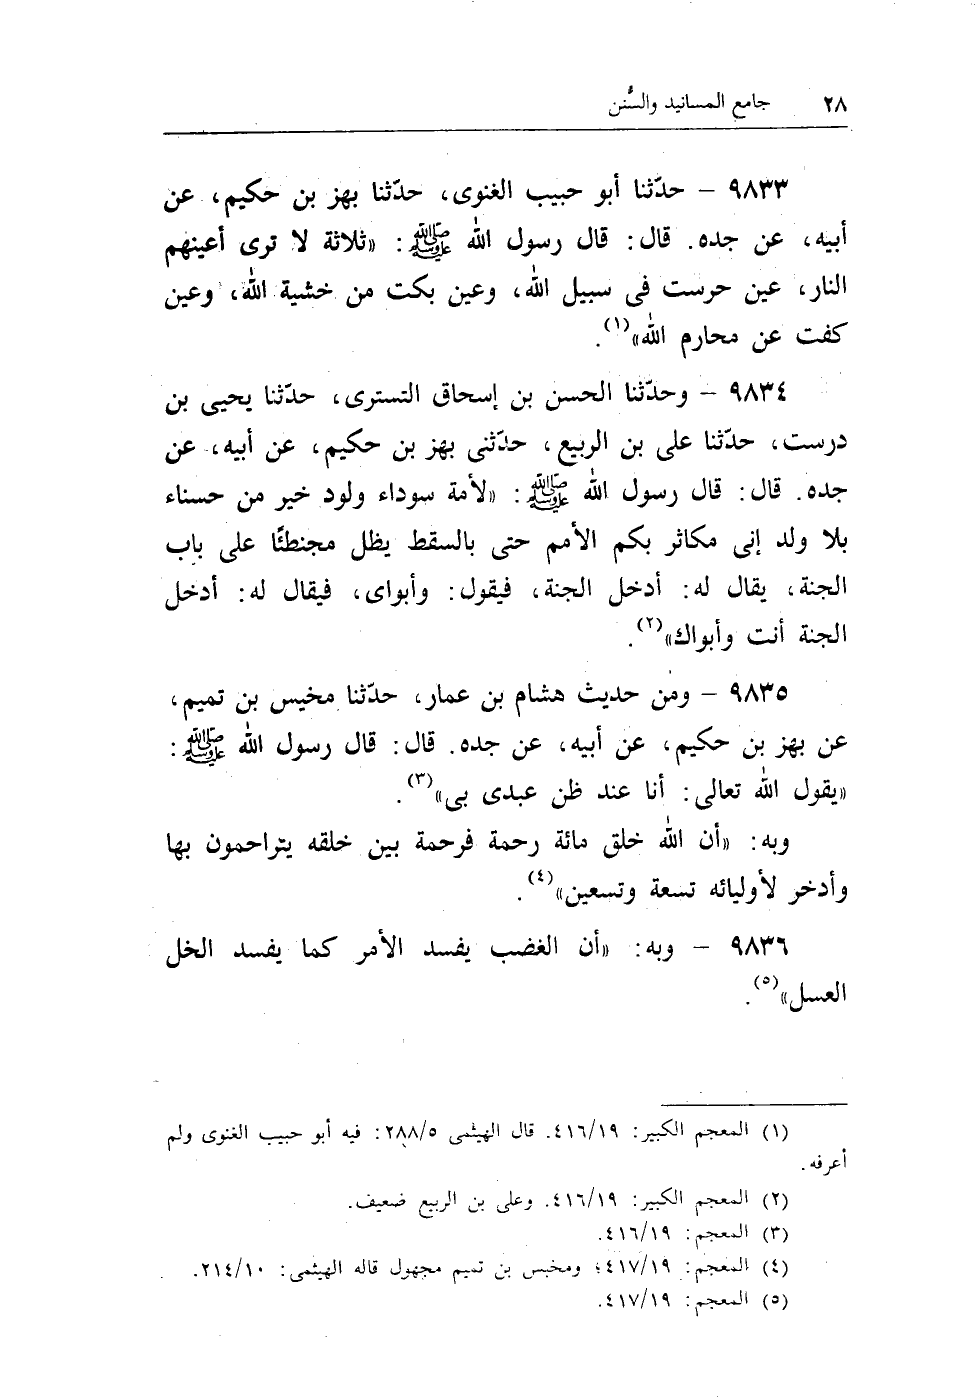 ٢٨ جامع المسانيد والسُّنن
٩٨٣٣ - حدّثنا أبو حبيب الغنوى، حدّثنا بهز بن حكيم، عن
أبيه، عن جده. قال: قال رسول الله ﷺ: «ثلاثة لا ترى أعينهم
النار، عين حرست فى سبيل الله، وعين بكت من خشية الله، وعين
كفت عن محارم الله»(١).
٩٨٣٤ - وحدّثنا الحسن بن إسحاق التسترى، حدّثنا يحيى بن
درست، حدّثنا على بن الربيع، حدّثنى بهز بن حكيم، عن أبيه، عن
جده. قال: قال رسول الله ﷺ: «لأمة سوداء ولود خير من حسناء
بلا ولد إنى مكاثر بكم الأمم حتى بالسقط يظل مجنطئًا على باب
الجنة، يقال له: أدخل الجنة، فيقول: وأبواى، فيقال له: أدخل
الجنة أنت وأبواك»(٢).
٩٨٣٥ - ومن حديث هشام بن عمار، حدّثنا مخيس بن تميم،
عن بهز بن حكيم، عن أبيه، عن جده. قال: قال رسول الله ﷺ:
«يقول الله تعالى: أنا عند ظن عبدى بى»(٣).
وبه: «أن الله خلق مائة رحمة فرحمة بين خلقه يتراحمون بها
وأدخر لأوليائه تسعة وتسعين»(٤).
٩٨٣٦ - وبه: «أن الغضب يفسد الأمر كما يفسد الخل
العسل»(٥).
(١) المعجم الكبير: ٤١٦/١٩. قال الهيثمى ٢٨٨/٥: فيه أبو حبيب الغنوى ولم
أعرفه.
(٢) المعجم الكبير: ٤١٦/١٩. وعلى بن الربيع ضعيف.
(٣) المعجم: ٤١٦/١٩.
(٤) المعجم: ٤١٧/١٩؛ ومخيس بن تميم مجهول قاله الهيثمى: ٢١٤/١٠.
(٥) المعجم: ٤١٧/١٩.